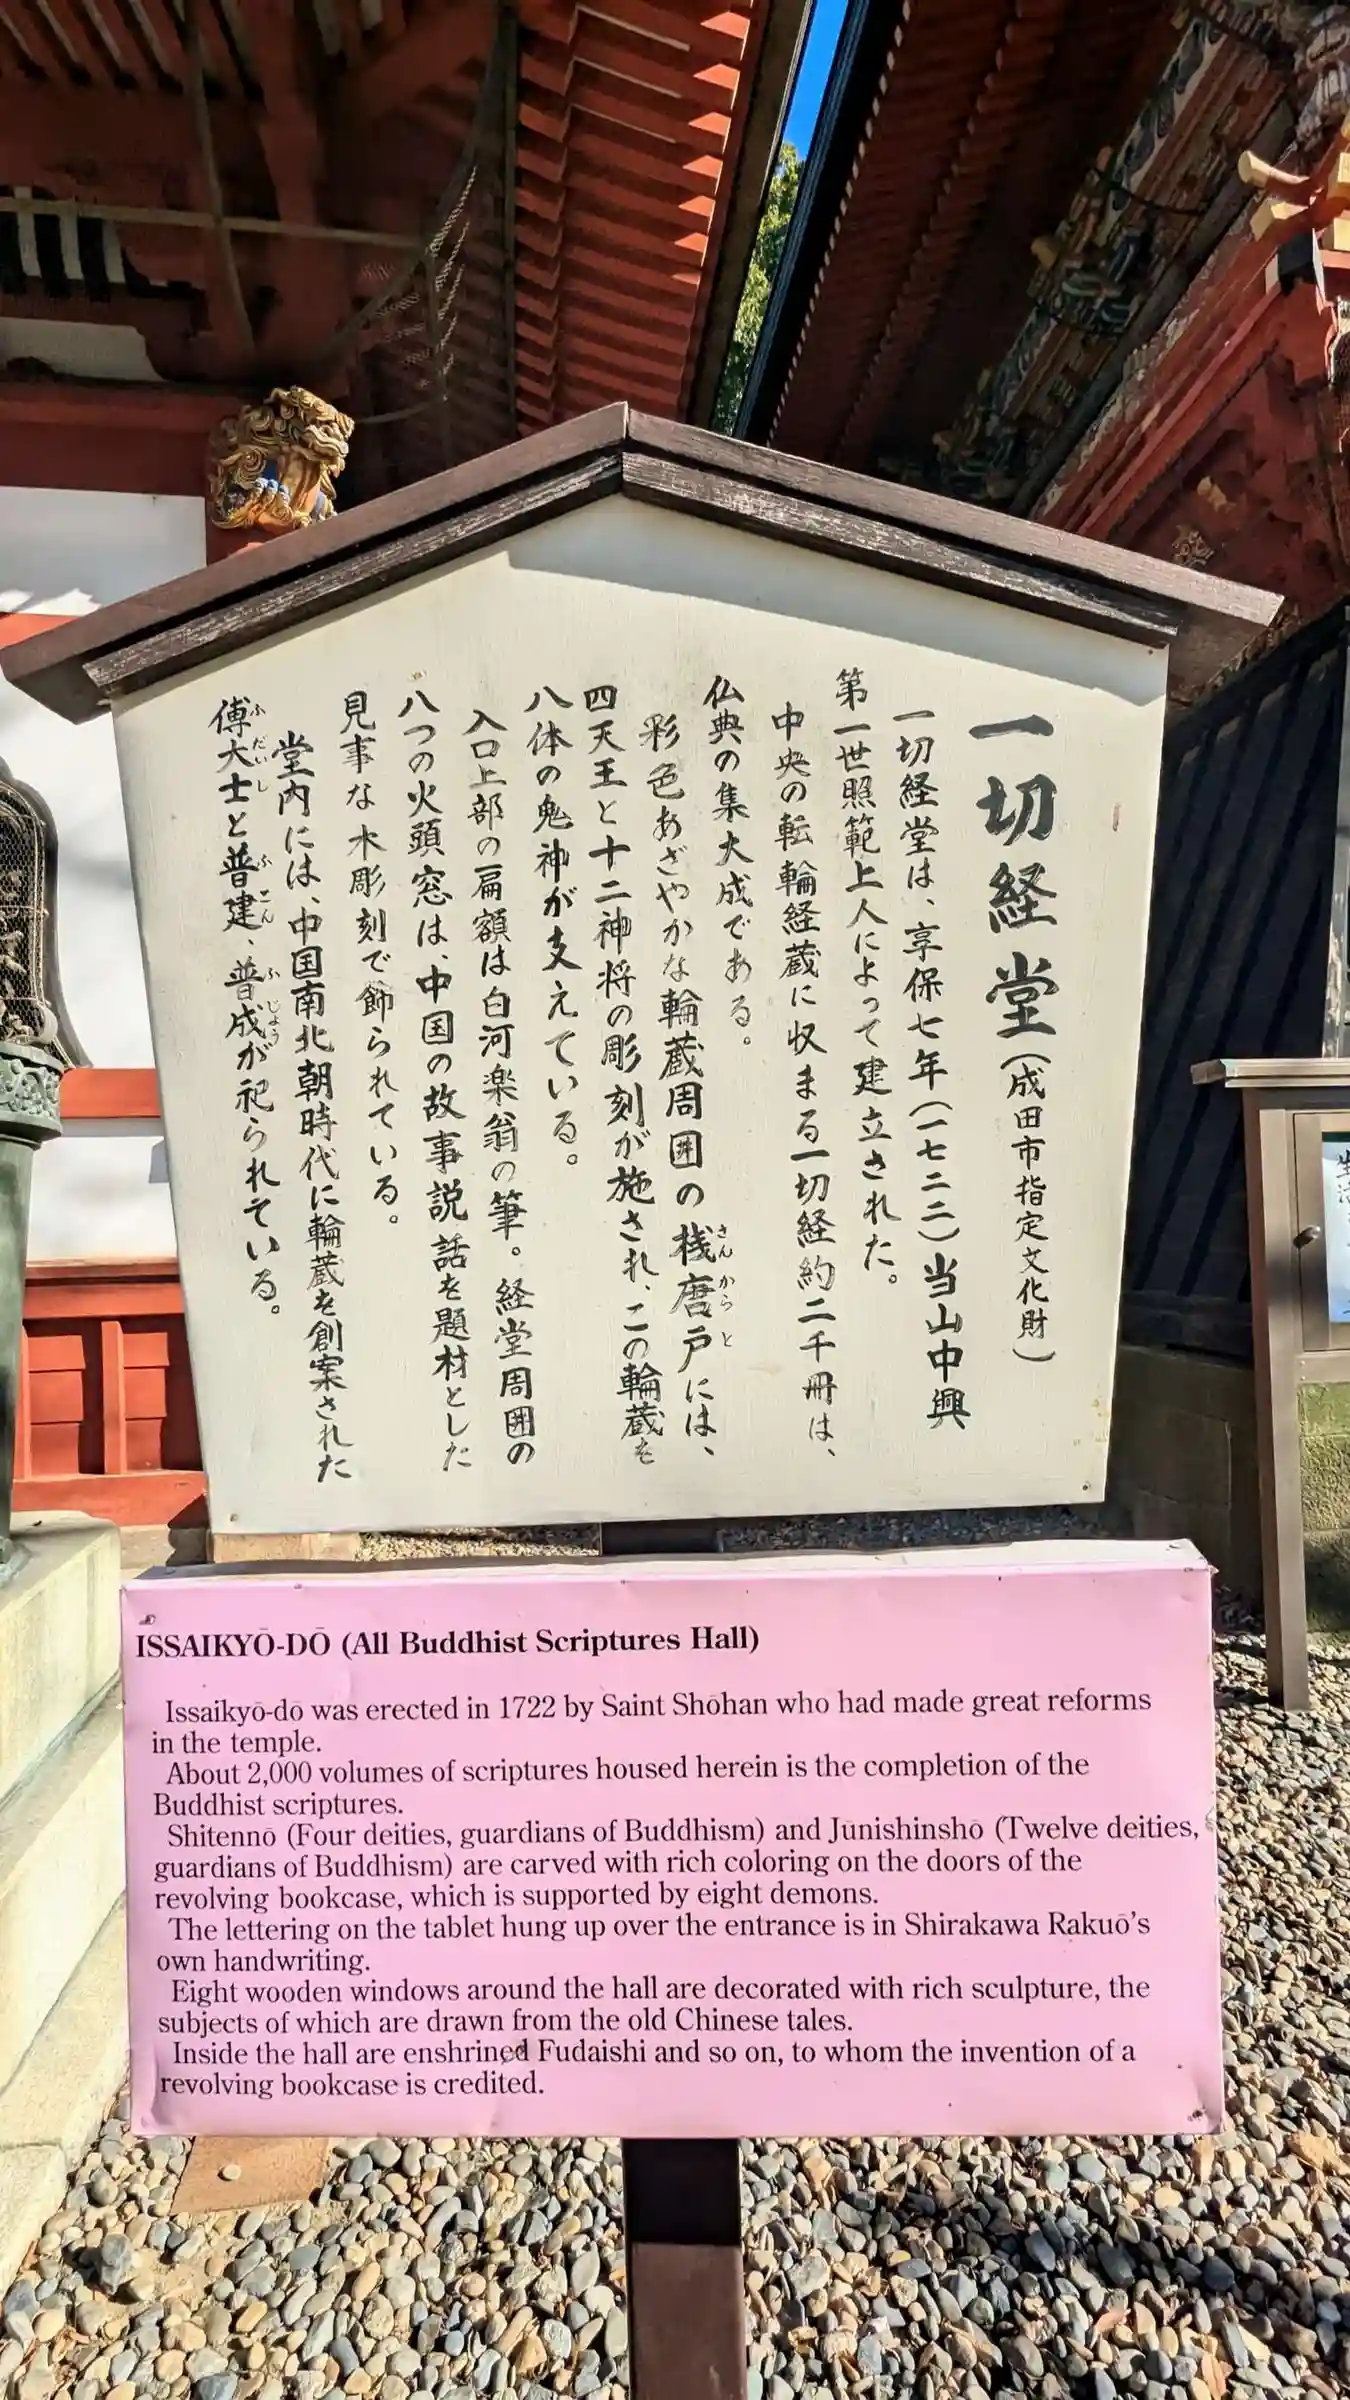 一切経堂(成田市指定文化財)
一切経堂は、享保七年(一七二二)当山中興
第一世照範上人によって建立された。
中央の転輪経蔵に収まる一切経約二千冊は、
仏典の集大成である。
彩色あざやかな輪蔵周囲の桟唐戸には、
さんからと
四天王と十二神将の彫刻が施され、この輪蔵を
八体の鬼神が支えている。
入口上部の扁額は白河楽翁の筆。経堂周囲の
八つの火頭窓は、中国の故事説話を題材とした
見事な木彫刻で飾られている。
堂内には、中国南北朝時代に輪蔵を創案された
傅大士と普建、普成が祀られている。
ふだいし
ふこん
ふじょう
ISSAIKYŌ-DŌ (All Buddhist Scriptures Hall)
Issaikyō-dō was erected in 1722 by Saint Shōhan who had made great reforms
in the temple.
About 2,000 volumes of scriptures housed herein is the completion of the
Buddhist scriptures.
Shitennō (Four deities, guardians of Buddhism) and Jūnishinshō (Twelve deities,
guardians of Buddhism) are carved with rich coloring on the doors of the
revolving bookcase, which is supported by eight demons.
The lettering on the tablet hung up over the entrance is in Shirakawa Rakuō's
own handwriting.
Eight wooden windows around the hall are decorated with rich sculpture, the
subjects of which are drawn from the old Chinese tales.
Inside the hall are enshrined Fudaishi and so on, to whom the invention of a
revolving bookcase is credited.